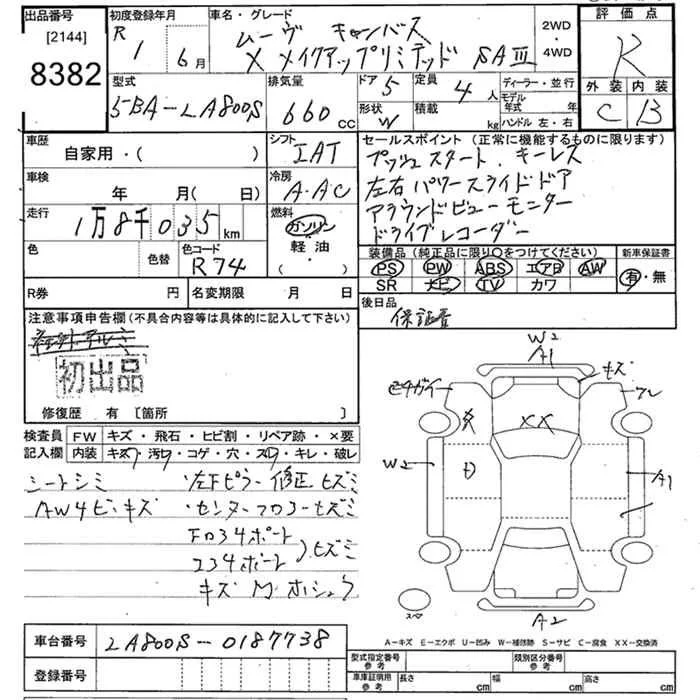 出品番号
[2144]
8382
初度登録年月
R 1 6月
車名・グレード
ムーヴ キャンバス
X メイクアップリミテッド SAIII
2WD
・
4WD
評価点
R
外装 内装
C B
型式
5BA-LA800S
排気量
660 cc
ドア 5
定員 4人
形状 W
積載 kg
ディーラー・並行
モデル年式 年
ハンドル 左・右
車歴
自家用・( )
車検
年 月( 日)
走行
1万8千035km
色
色替
色コード
R74
シフト
IAT
冷房
A・AC
燃料
ガソリン
軽・油
・( )
セールスポイント(正常に機能するものに限ります)
プッシュスタート、キーレス
左右パワースライドドア
アラウンドビューモニター
ドライブレコーダー
装備品(純正品に限り○をつけてください)
PS PW ABS エアB AW
SR ナビ TV カワ
新車保証書
有・無
R券 円
名変期限 月 日
後日品
保証書
注意事項申告欄(不具合内容等は具体的に記入して下さい)
初出品
修復歴 有 [箇所 ]
検査員
記入欄
FW キズ・飛石・ヒビ割・リペア跡・×要
内装 キズ・汚れ・コゲ・穴・スレ・キレ・破レ
シートシミ
AW4ビキズ
・左Fピラー修正ヒズミ
・センターフロアーヒズミ
ヒズミ
キズ
W2
A1
キズ
XX
W2
A1
A2
スペア
A-キズ E-エクボ U-凹み W-補修跡 S-サビ C-腐食 XX-交換済
車台番号
LA800S-0187738
登録番号
型式指定番号
参考
類別区分番号
参考
車庫証明用
参考
長さ cm
幅 cm
高さ cm